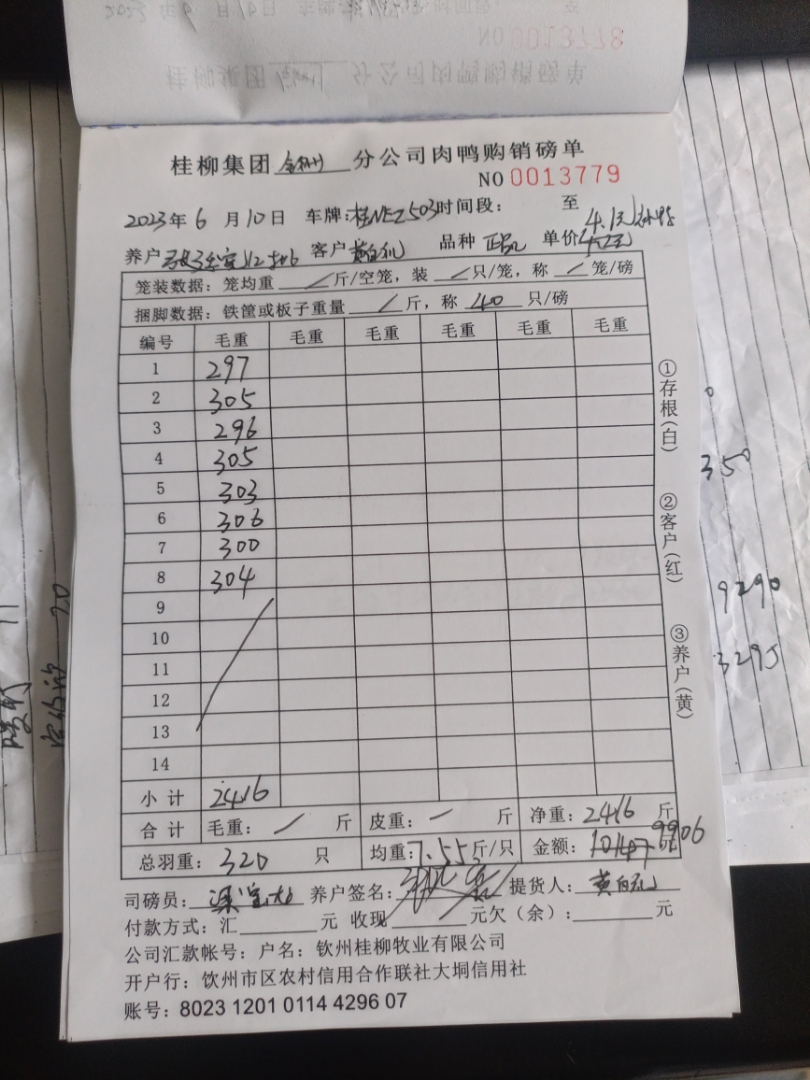 桂柳集团 钦州 分公司肉鸭购销磅单
NO 0013779
2023年 6 月 10 日 车牌:桂NEZ503 时间段: 至
4.1元
养户 客户 黄白瓦 品种 单价
笼装数据: 笼均重 / 斤/空笼, 装 / 只/笼, 称 / 笼/磅
捆脚数据: 铁筐或板子重量 / 斤, 称 40 只/磅
编号 毛重 毛重 毛重 毛重 毛重 毛重
1 297
2 305
3 296
4 305
5 303
6 306
7 300
8 304
9
10
11
12
13
14
小计 2416
合计 毛重: / 斤 皮重: 一 斤 净重: 2416 斤
9906
总羽重: 320 只 均重: 7.55 斤/只 金额:
司磅员: 养户签名: 提货人:
付款方式: 汇 元 收现 元欠(余): 元
公司汇款帐号: 户名: 钦州桂柳牧业有限公司
开户行: 饮州市区农村信用合作联社大垌信用社
账号: 8023 1201 0114 4296 07
①存根(白)
②客户(红)
③养户(黄)
350
9290
3295